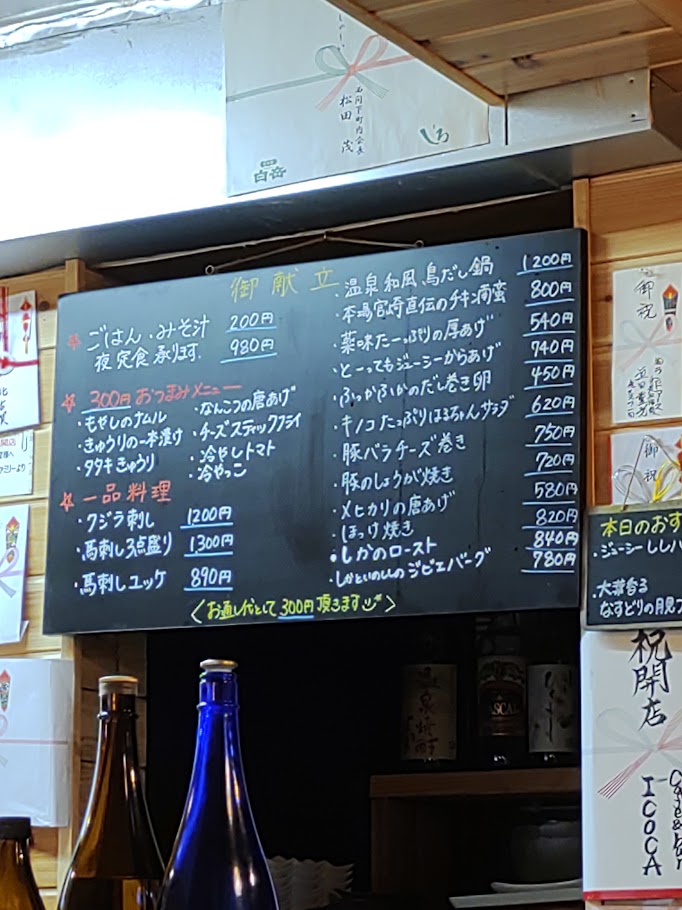 石岡下町内会長
松田 茂
白岳
しろ
御献立
・ごはん・みそ汁 200円
夜定食承ります。 980円
300円おつまみメニュー
・もやしのナムル
・きゅうりの一本漬け
・タタキきゅうり
・なんこつの唐あげ
・チーズスティックフライ
・冷やしトマト
・冷やっこ
一品料理
・クジラ刺し 1200円
・馬刺し3点盛り 1300円
・馬刺しユッケ 890円
・温泉和風鳥だし鍋 1200円
・本場宮崎直伝のチキン南蛮 800円
・薬味たーっぷりの厚あげ 540円
・とーってもジューシーからあげ 740円
・ふっかふかのだし巻き卵 450円
・キノコたっぷりはるちゃんサラダ 620円
・豚バラチーズ巻き 750円
・豚のしょうが焼き 720円
・メヒカリの唐あげ 580円
・ほっけ焼き 820円
・しかのロースト 840円
・しかといのししのジビエバーグ 780円
〈お通し代として300円頂きます〉
御祝
御祝
本日のおす
・ジューシーししハ
・大葉香る
なすどりの月見フ
祝開店
ICOCA